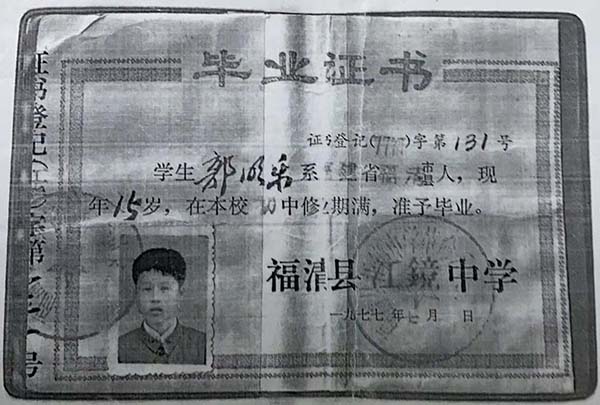 毕业证书
证书登记(77)字第131号
学生郭 系福建省福清县人，现
年15岁，在本校初中修业期满，准予毕业。
福清县江镜中学
一九七七年 月 日